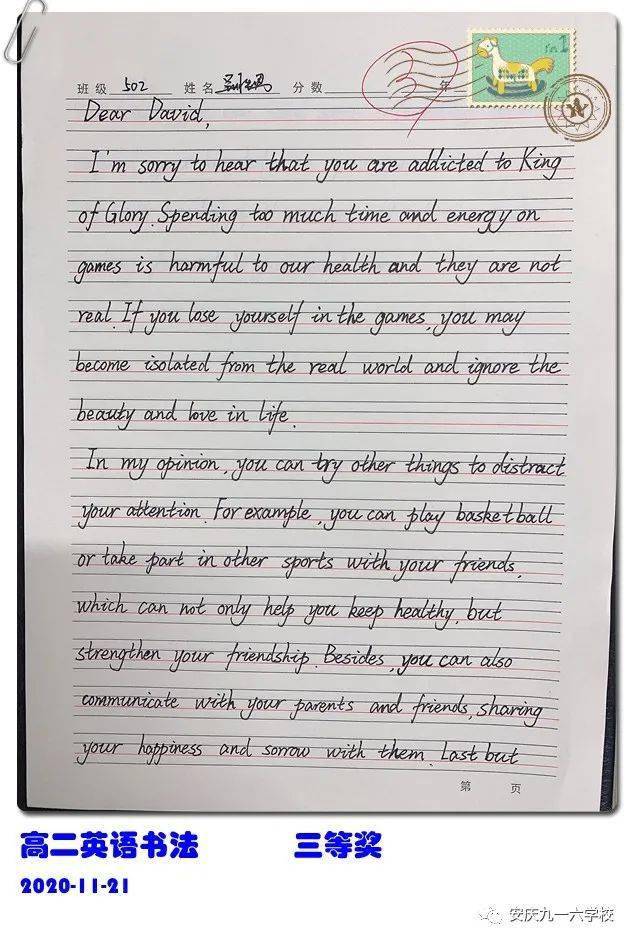 班级 502 姓名 分数 年
Dear David,
I'm sorry to hear that you are addicted to King
of Glory. Spending too much time and energy on
games is harmful to our health and they are not
real. If you lose yourself in the games, you may
become isolated from the real world and ignore the
beauty and love in life.
In my opinion, you can try other things to distract
your attention. For example, you can play basketball
or take part in other sports with your friends,
which can not only help you keep healthy, but
strengthen your friendship. Besides, you can also
communicate with your parents and friends, sharing
your happiness and sorrow with them. Last but
第 页
高二英语书法 三等奖
2020-11-21
安庆九一六学校